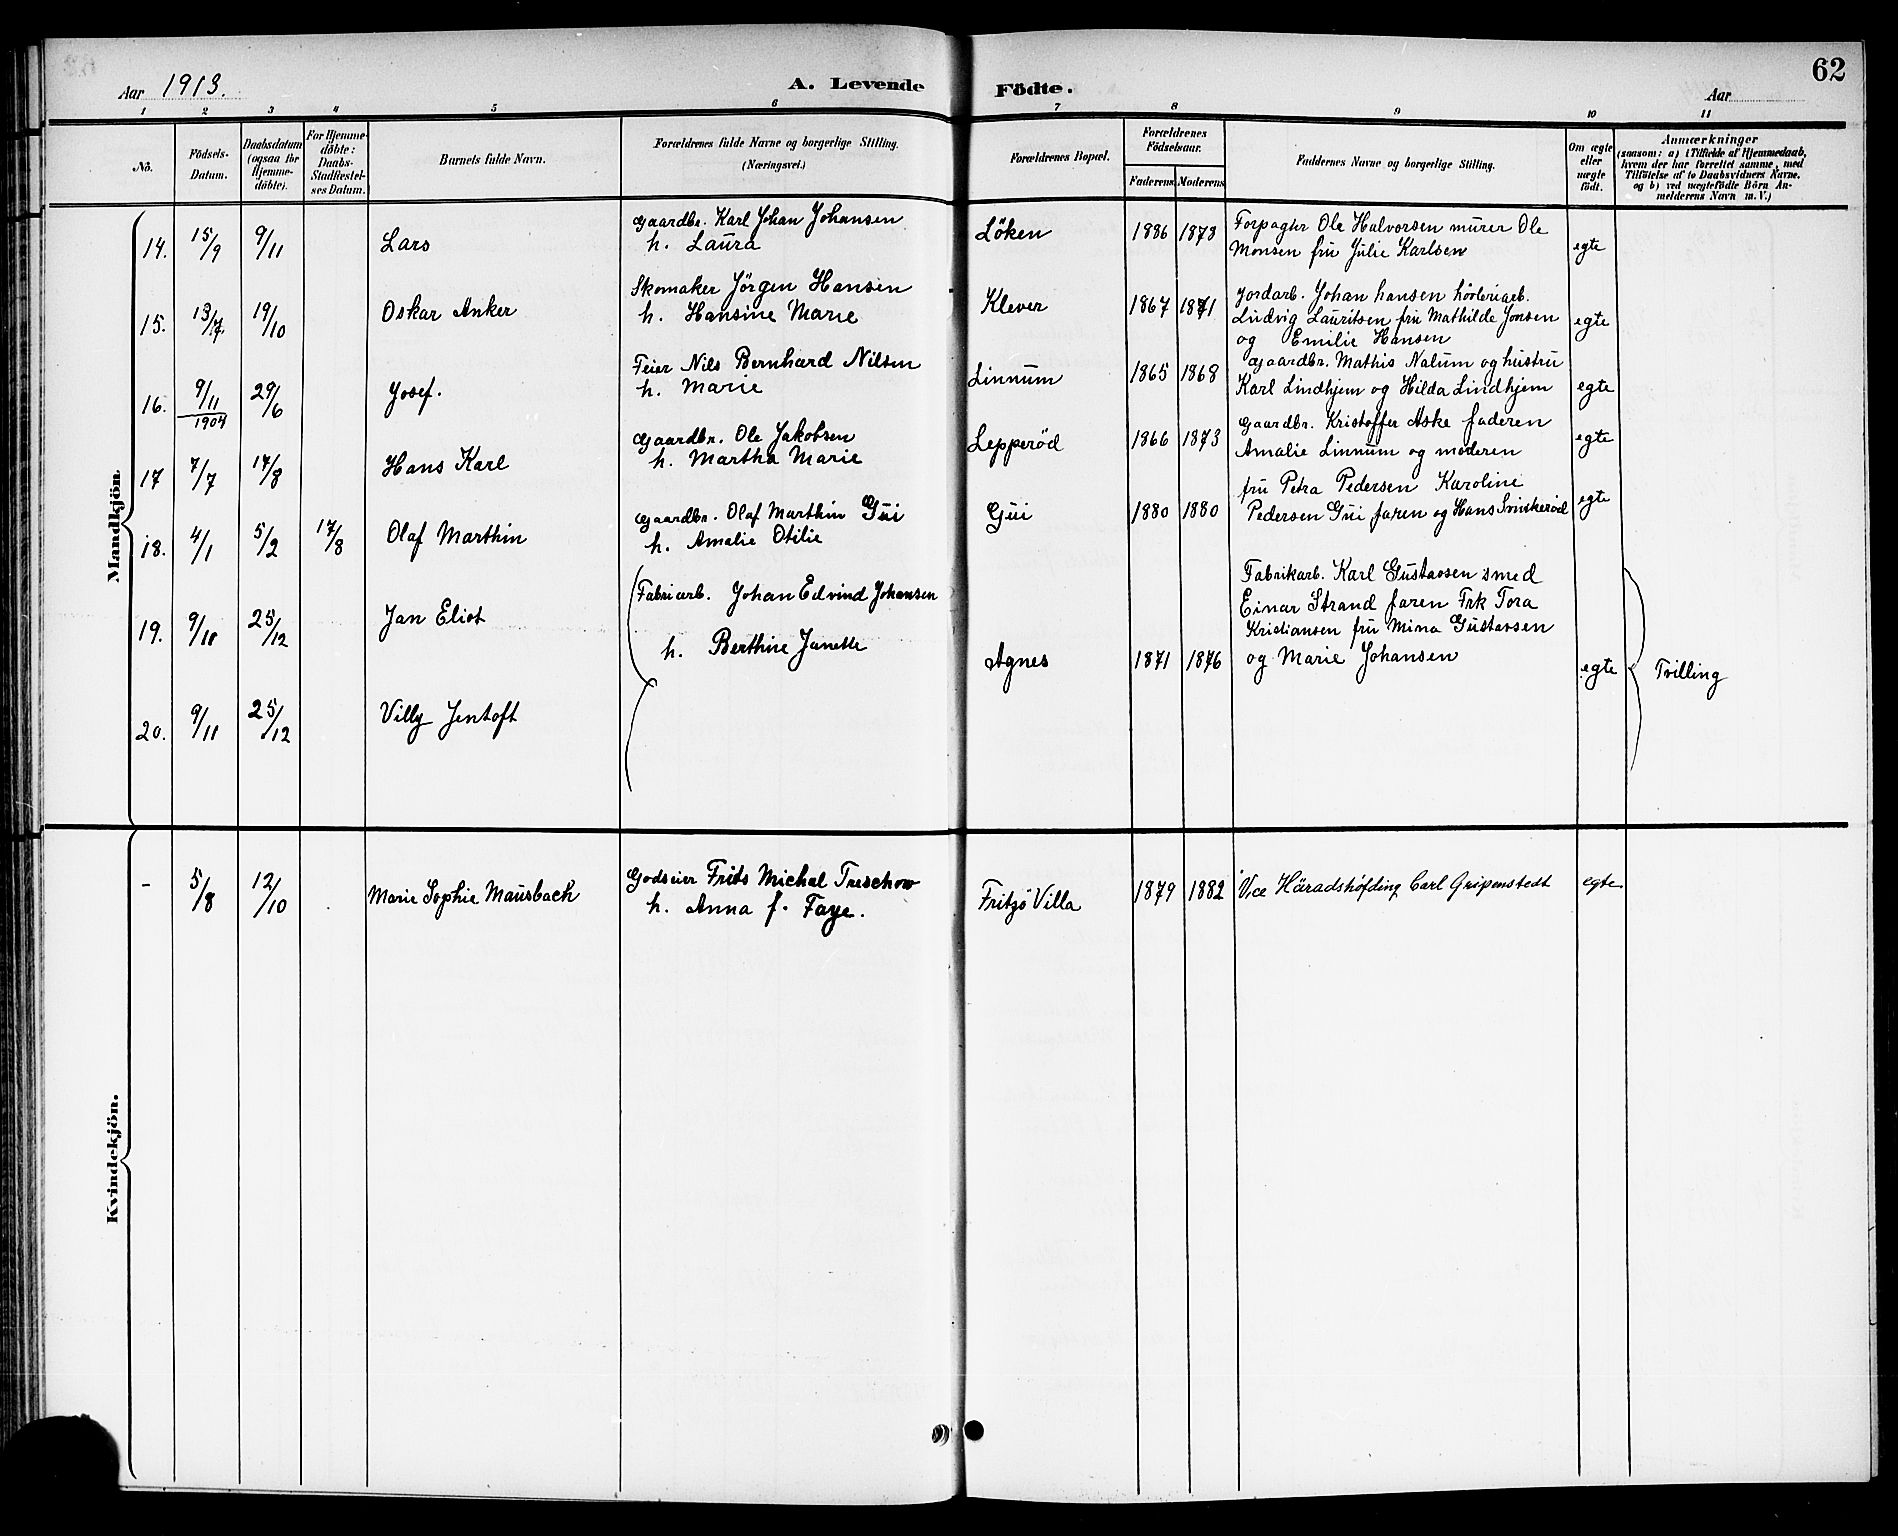 62
Aar 1913.
A. Levende Födte.
Aar
1 2 3 4 5 6 7 8 9 10 11
No.
Födsels-Datum.
Daabsdatum (ogsaa for Hjemme-döbte).
For Hjemme-döbte: Daabs-Stadfestel-ses Datum.
Barnets fulde Navn.
Forældrenes fulde Navne og borgerlige Stilling.
(Næringsvei.)
Forældrenes Bopæl.
Forældrenes Födselsaar.
Faderens Moderens
Faddernes Navne og borgerlige Stilling.
Om ægte eller uægte födt.
Anmærkninger
(saasom: a) i Tilfælde af Hjemmedaab,
hvem der har forrettet samme, med
Tilföielse af to Daabsvidners Navne.
og b) ved uægtefödte Börn An-
melderens Navn m. V.)
Mandkjön.
14. 15/9 9/11 Lars
Gaardbr. Karl Johan Johansen
h. Laura
Löken 1886 1878
Forpagter Ole Halvorsen murer Ole
Monsen fru Julie Karlsen
egte
15. 13/7 19/10 Oskar Anker
Skomaker Jörgen Hansen
h. Hansine Marie
Klever 1867 1871
Jordarb. Johan hansen
Ludvig Lauritsen fru Mathilde Jonsen
og Emilie Hansen
egte
16. 9/11 1904 29/6 Josef.
Feier Nils Bernhard Nilsen
h. Marie
Linnum 1865 1868
Gaardbr. Mathis Nalum og hustru
Karl Lindhjem og Hilda Lindhjem
egte
17 7/7 17/8 Hans Karl
Gaardbr. Ole Jakobsen
h. Martha Marie
Lepperöd 1866 1873
Gaardbr. Kristoffer Aske faderen
Amalie Linnum og moderen
egte
18. 4/1 5/2 17/8 Olaf Marthin
Gaardbr. Olaf Marthin Gui
h. Amalie Otilie
Gui 1880 1880
fru Petra Pedersen Karoline
Pedersen Gui faren og Hans
egte
19. 9/11 25/12 Jan Eliot
Fabriarb. Johan Edvind Johansen
h. Berthine Janette
Agnes 1871 1876
Fabrikarb. Karl Gustavsen smed
Einar Strand faren Frk Tora
Kristiansen fru Mina Gustavsen
og Marie Johansen
egte Tvilling
20. 9/11 25/12 Villy Jentoft
Kvindekjön.
- 5/8 12/10 Marie Sophie Mausbach
Godseier Frits Michal Treschow
h. Anna f. Faye.
Fritzö Villa 1879 1882
Vice Häradshöfding Carl Gripenstedt
egte